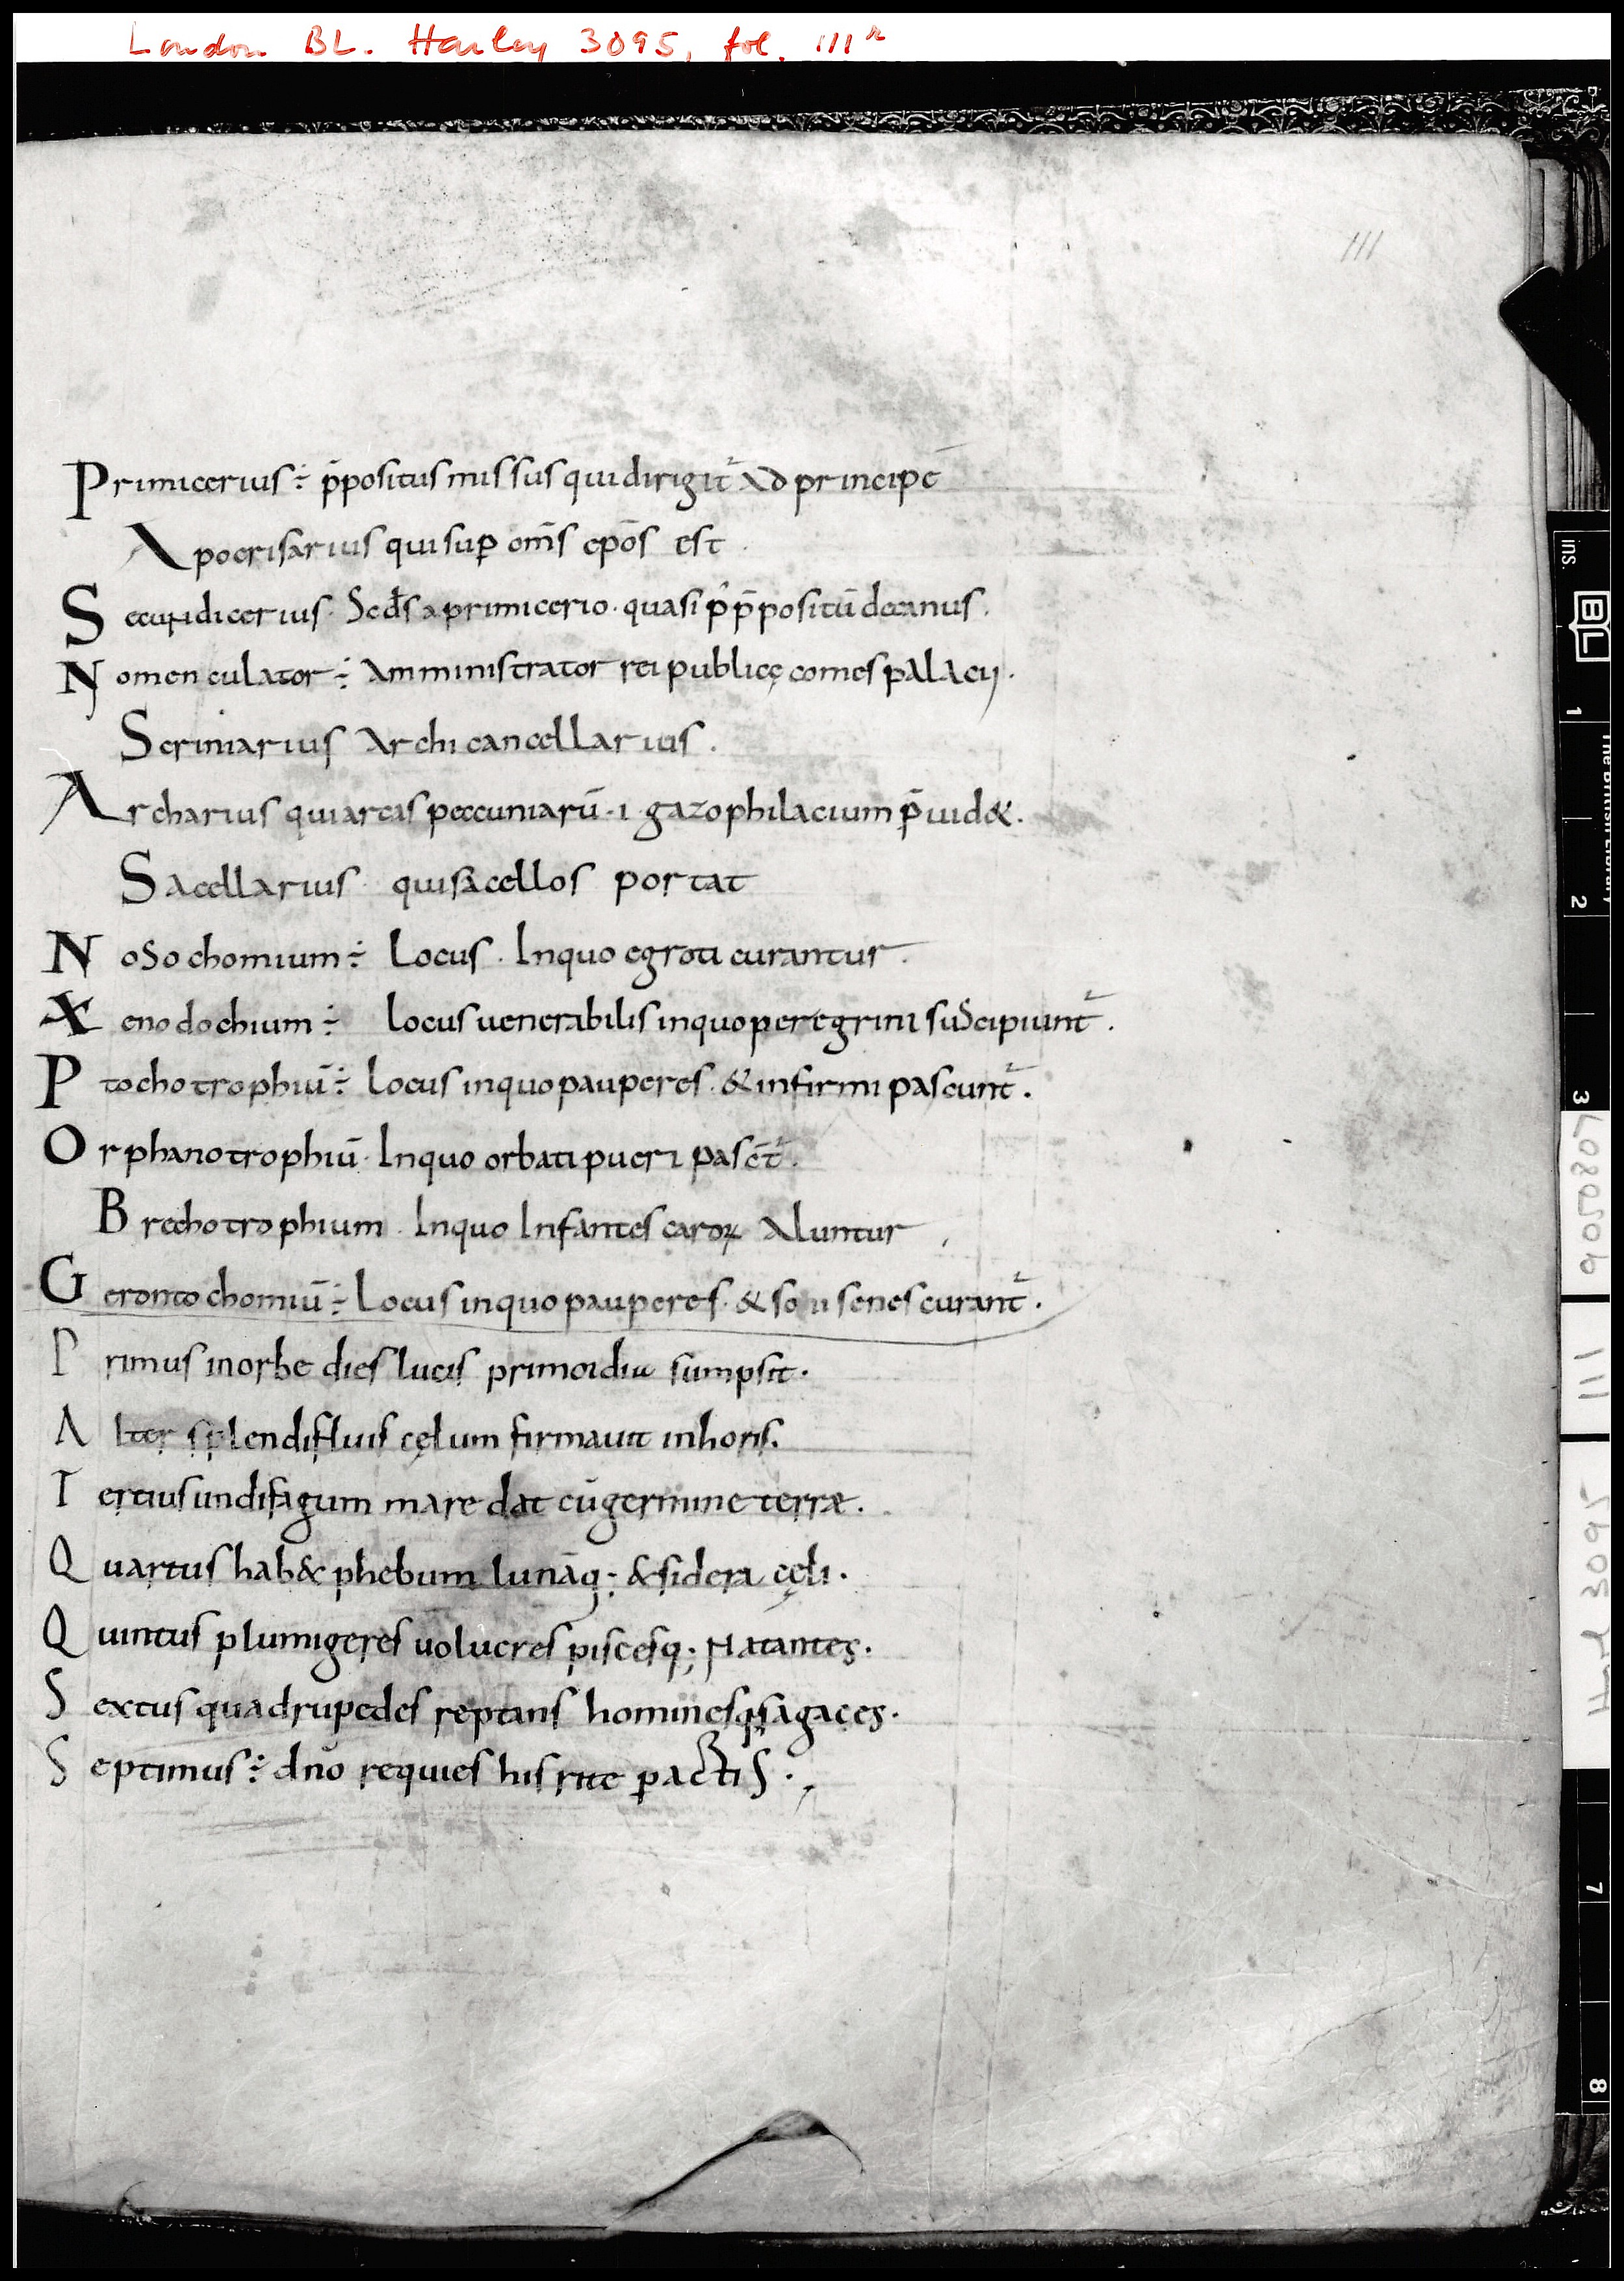 London BL. Harley 3095, fol. 111r
111
Primicerius ÷ p̄positus missus qui dirigit᷑ ad principē
Apocrisarius qui suꝑ om̄s ep̄os est
Secundicerius. Sc̄ds a primicerio. quasi p᷑ p̄positū decanus.
Nomenculator ÷ Amministrator rei publicę comes palacii.
Scriniarius Archicancellarius.
Archarius qui arcas peccuniarū .i. gazophilacium p̄uid&.
Sacellarius qui sacellos portat
Nosochomium ÷ Locus. In quo egroti curantur.
Xenodochium ÷ Locus uenerabilis in quo peregrini suscipiunt᷑.
Ptochotrophiū ÷ Locus in quo pauperes. & infirmi pascunt᷑.
Orphanotrophiū. In quo orbati pueri pasct̄᷑.
Brechotrophium. In quo Infantes caroꝝ Aluntur
Gerontochomiū ÷ Locus in quo pauperes. & senes curant᷑.
Primus in orbe dies lucis primordia sumpsit.
Alter splendifluis cęlum firmauit in horis.
Tercius undifagum mare dat cū germine terræ.
Quartus hab& phebum lunāq; & sidera cęli.
Quintus plumigeres uolucres piscesq; natantes.
Sextus quadrupedes reptans hominesq; sagaces.
Septimus ÷ dn̄o requies his rite ꝑactis.
ins.
BL
The British Library
1
2
3
7
8
111
3095